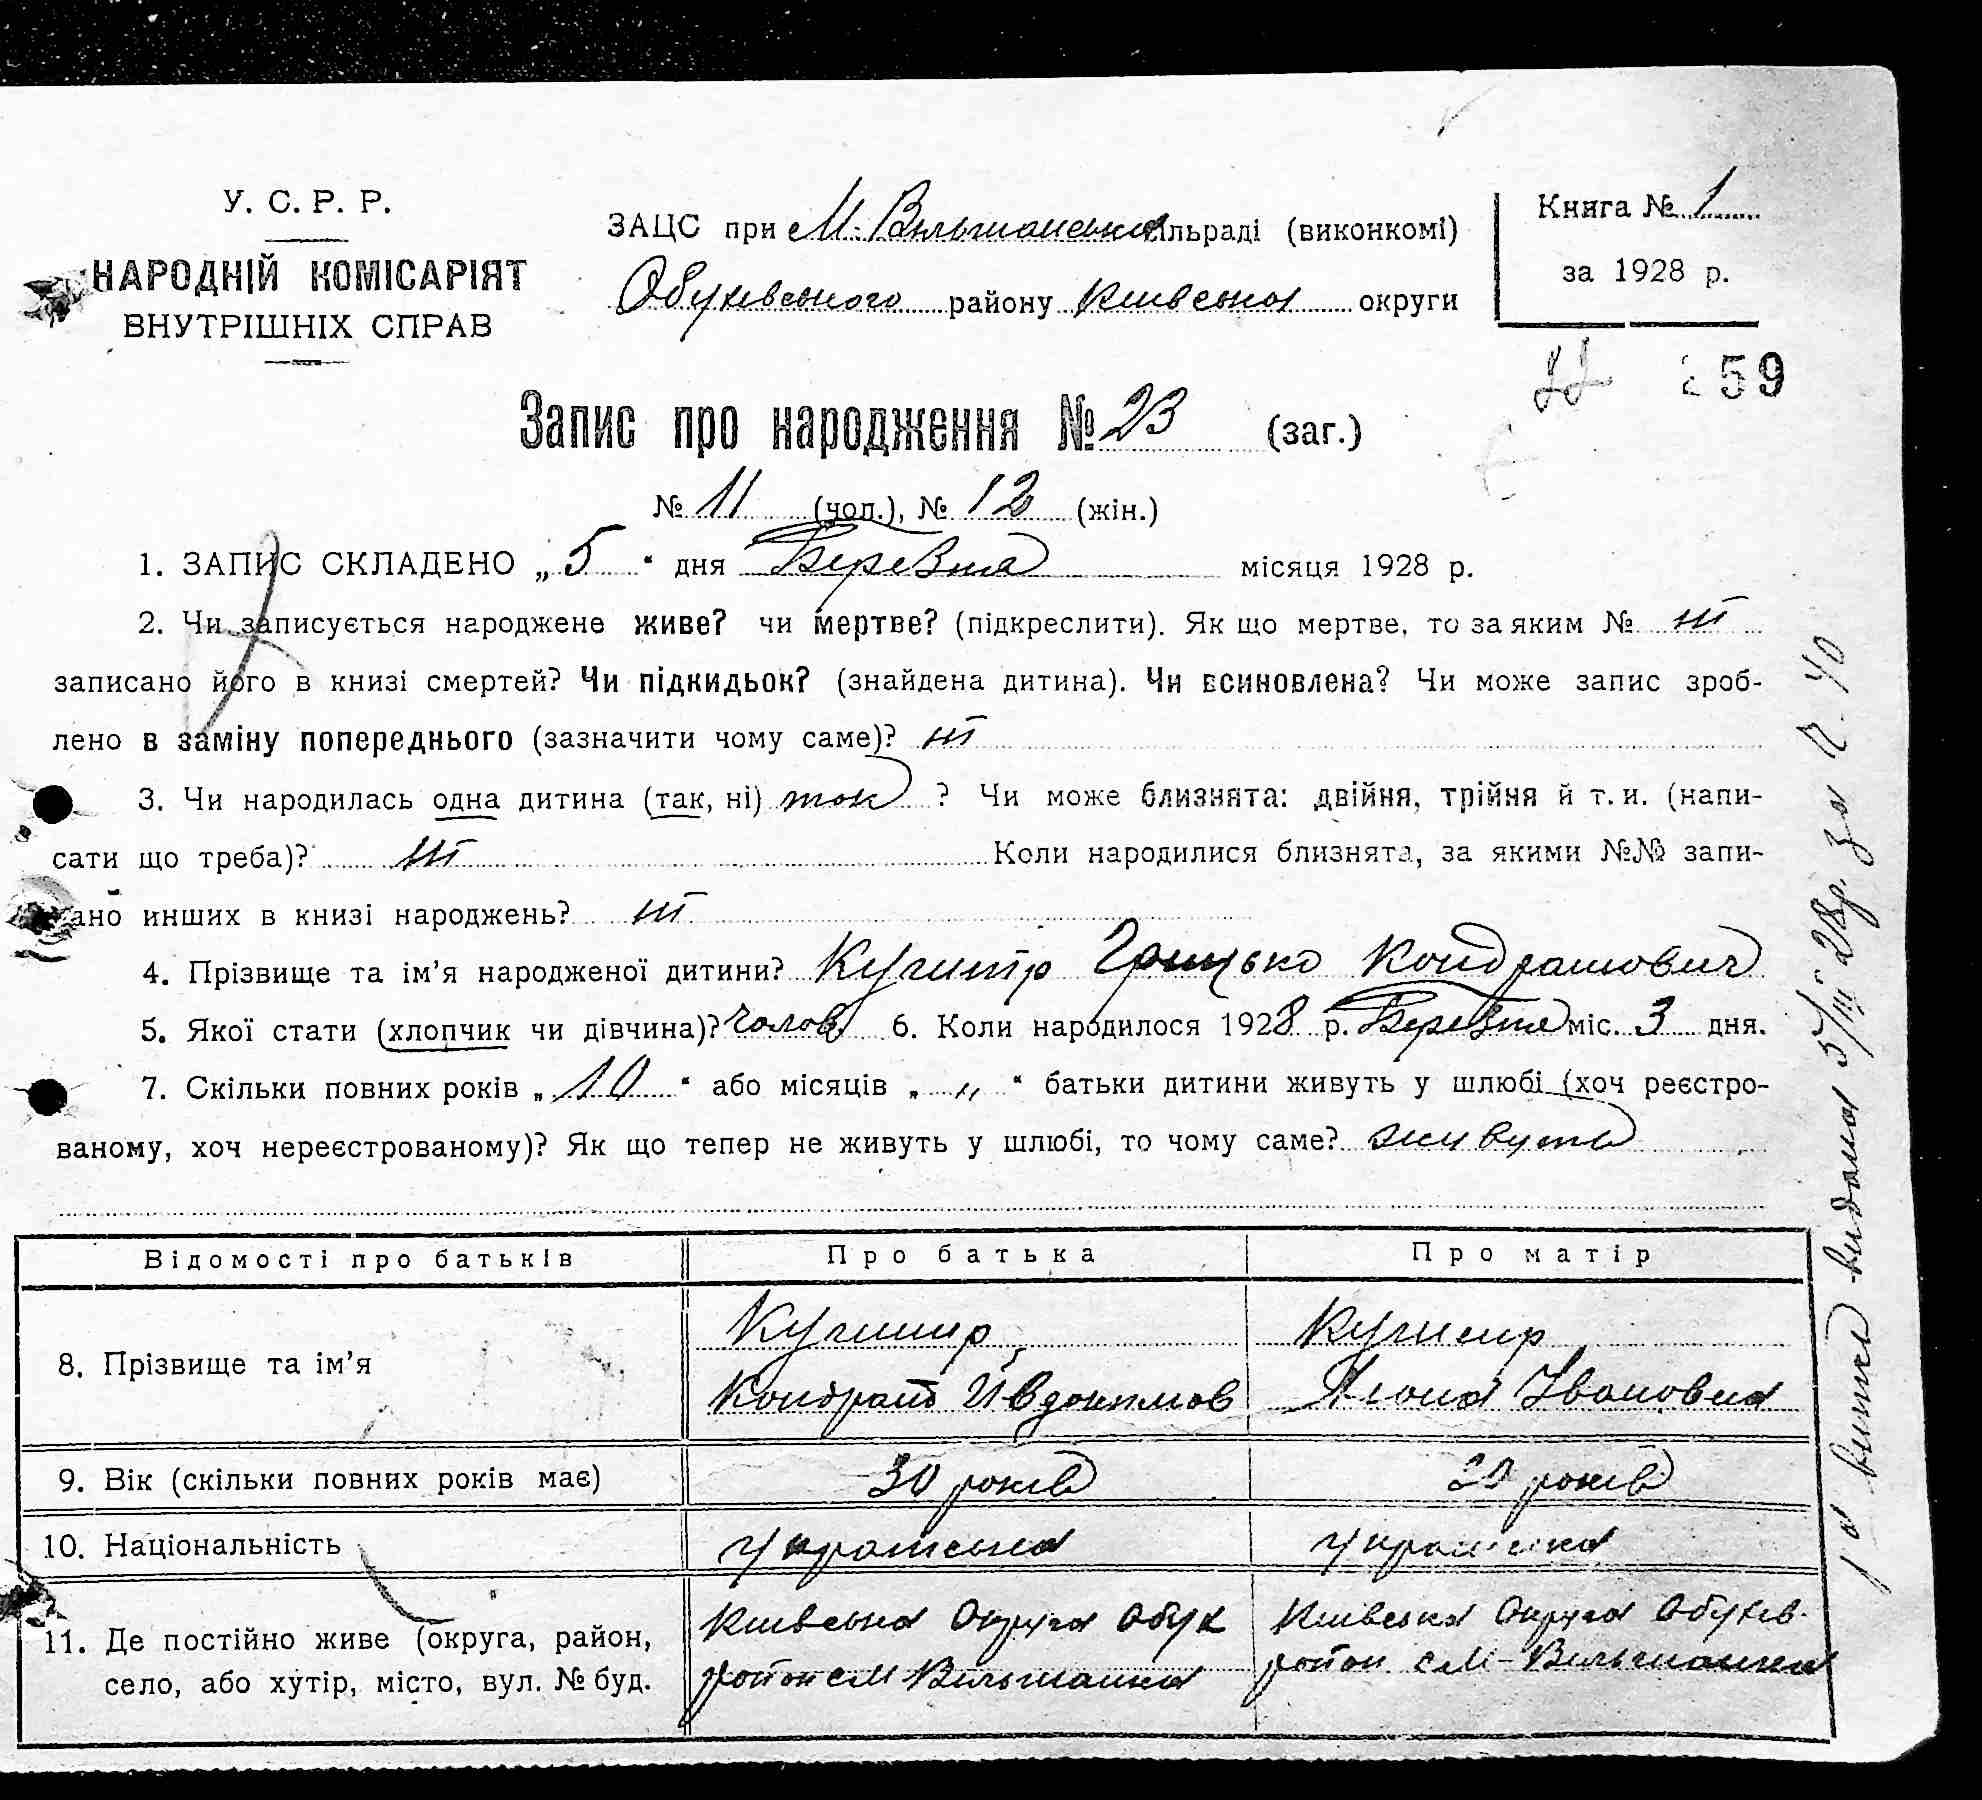 У. С. Р. Р.
НАРОДНІЙ КОМІСАРІЯТ
ВНУТРІШНІХ СПРАВ
ЗАЦС при М. Вільшанська сільраді (виконкомі)
Обухівського району Київська округи
Книга № 1
за 1928 р.
59
Запис про народження № 23 (заг.)
№ 11 (чол.), № 12 (жін.)
1. ЗАПИС СКЛАДЕНО „ 5 “ дня Березня місяця 1928 р.
2. Чи записується народжене живе? чи мертве? (підкреслити). Як що мертве, то за яким № ні
записано його в книзі смертей? Чи підкидьок? (знайдена дитина). Чи всиновлена? Чи може запис зроб-
лено в заміну попереднього (зазначити чому саме)? ні
3. Чи народилась одна дитина (так, ні) так ? Чи може близнята: двійня, трійня й т. и. (напи-
сати що треба)? ні Коли народилися близнята, за якими №№ запи-
сано инших в книзі народжень? ні
4. Прізвище та ім’я народженої дитини? Кучимір Грицько Кондратович
5. Якої стати (хлопчик чи дівчина)? Чолов 6. Коли народилося 1928 р. Березня міс. 3 дня.
7. Скільки повних років „ 10 “ або місяців „ „ “ батьки дитини живуть у шлюбі (хоч реєстро-
ваному, хоч нереєстрованому)? Як що тепер не живуть у шлюбі, то чому саме? живуть
Відомості про батьків Про батька Про матір
8. Прізвище та ім’я
Кучимир Кучимир
Кондрат Ивдокимов Ивановна
9. Вік (скільки повних років має) 30 років років
10. Національність українська українська
11. Де постійно живе (округа, район,
село, або хутір, місто, вул. № буд.
Київська Округа Обух Київська Округа Обухів.
район с М Вільшанка район с М-Вільшанка
видана 5/III 28р. за № 40